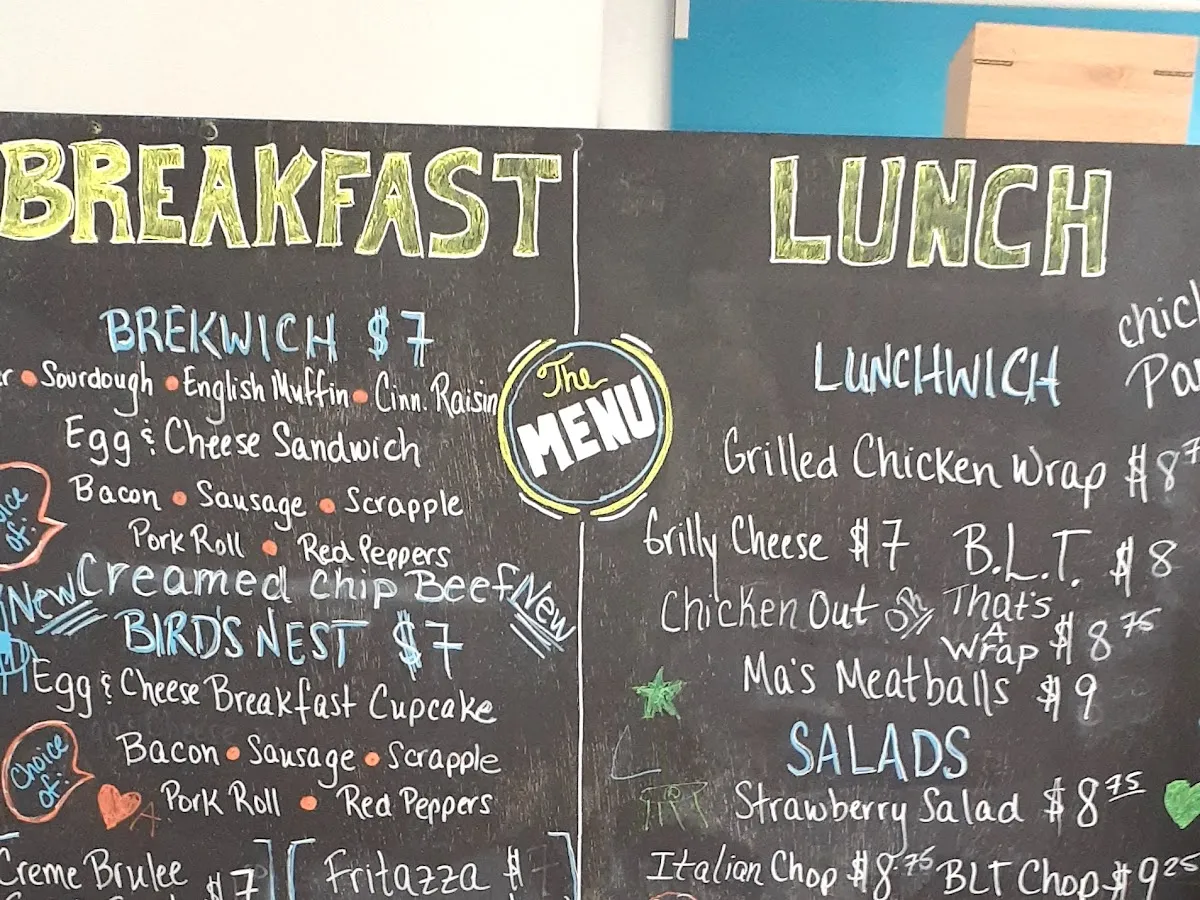 BREAKFAST
BREKWICH $7
Sourdough • English Muffin • Cinn. Raisin
Egg & Cheese Sandwich
Bacon • Sausage • Scrapple
of:
Pork Roll • Red Peppers
New Creamed Chip Beef New
BIRD'S NEST $7
Egg & Cheese Breakfast Cupcake
Choice of:
Bacon • Sausage • Scrapple
Pork Roll • Red Peppers
Creme Brulee $7
Fritazza $7
The
MENU
LUNCH
LUNCHWICH
Grilled Chicken Wrap $8
Grilly Cheese $7 B.L.T. $8
Chicken Out OR That's A Wrap $8 75
Ma's Meatballs $9
SALADS
Strawberry Salad $8 75
Italian Chop $8.75 BLT Chop $9 25